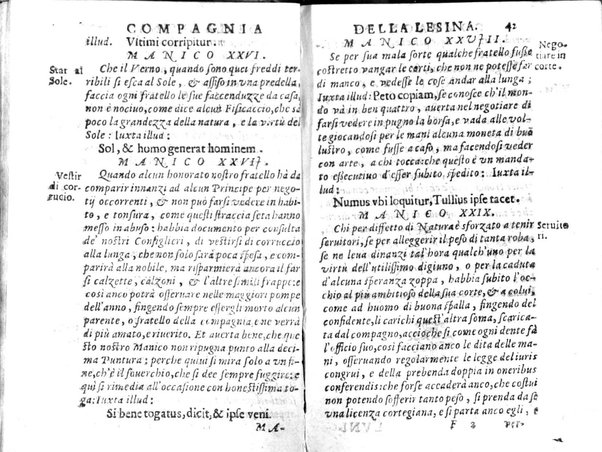 COMPAGNIA
illud. Vitimi corripitur.
MANICO XXVI.
Star al Sole.
Che il Verno, quando sono quei freddi terribili
si esca al Sole, & assiso in vna predella,
faccia ogni fratello le sue facenduzze da casa,
non è nociuo, come dice alcun Fisicaccio, che sà
poco la grandezza della natura, e la virtù del
Sole: Iuxta illud:
Sol, & homo generat hominem.
MANICO XXVII.
Vestir di corruccio.
Quando alcun honorato nostro fratello hà da
comparir innanzi ad alcun Principe per negotÿ
occorrenti, & non può farsi vedere in habito,
e tonsura, come questi straccia seta hanno
messo in abuso: habbia documento per consulta
de' nostri Consiglieri, di vestirsi di corruccio
alla lunga, che non solo sarà poca spesa, e comparirà
alla nobile, ma risparmierà ancora il far
si calzette, calzoni, & l'altre simili frappe:
così anco potrà osseruare nelle maggiori pompe
dell'anno, fingendo sempre essergli morto alcun
parente, o fratello della compagnia, e ne verrà
di più amato, e riuerito. Et auerta bene, che questo
nostro Manico non ripugna punto alla decima
Puntura: perche qui si mira solo a vn fine,
ch'è il souerchio, che si dee sempre fuggire:
qui si rimedia all'occasion con honestissima toga:
Iuxta illud:
Si bene togatus, dicit, & ipse veni.
MA-
DELLA LESINA. 42
MANICO XXVIII.
Negotiare in corte.
Se per sua mala sorte qualche fratello fusse
costretto vangar le corti, che non ne potesse far
di manco, e vedesse le cose andar alla lunga;
Iuxta illud: Peto copiam, se conosce ch'il mondo
và in ben quattro, auerta nel negotiare di
farsi vedere in pugno la borsa, e vada alle volte
giocandosi per le mani alcuna moneta di buò
lustro, come fusse a caso, ma facendosi veder
con arte, a chi tocca: che questo è vn mandato
essecutiuo d'esser subito spedito: Iuxta illud:
Numus vbi loquitur, Tullius ipse tacet.
MANICO XXIX.
Seruitori.
Chi per diffetto di Natura è sforzato a tenir
seruitori, se per alleggerir il peso di tanta roba,
se ne leua dinanzi tal'hora qualch'uno per la
virtù dell'utilissimo digiuno, o per la caduta
d'alcuna speranza zoppa, habbia subito l'occhio
al più ambitioso della sua corte, & a colui,
come ad huomo di buona spalla, fingendo del
confidente, li carichi quest'altra soma, scaricata
dal compagno, accioche si come ogni dente fà
l'officio suo, così facciano anco le dita delle mani,
osseruando regolarmente le legge del iuris
congrui, e della prebenda doppia in oneribus
conferendis: che forse accaderà anco, che costui
non potendo sofferir tanto peso, si prenda da se
vna licenza cortegiana, e si parta anco egli, e
F 2 per.